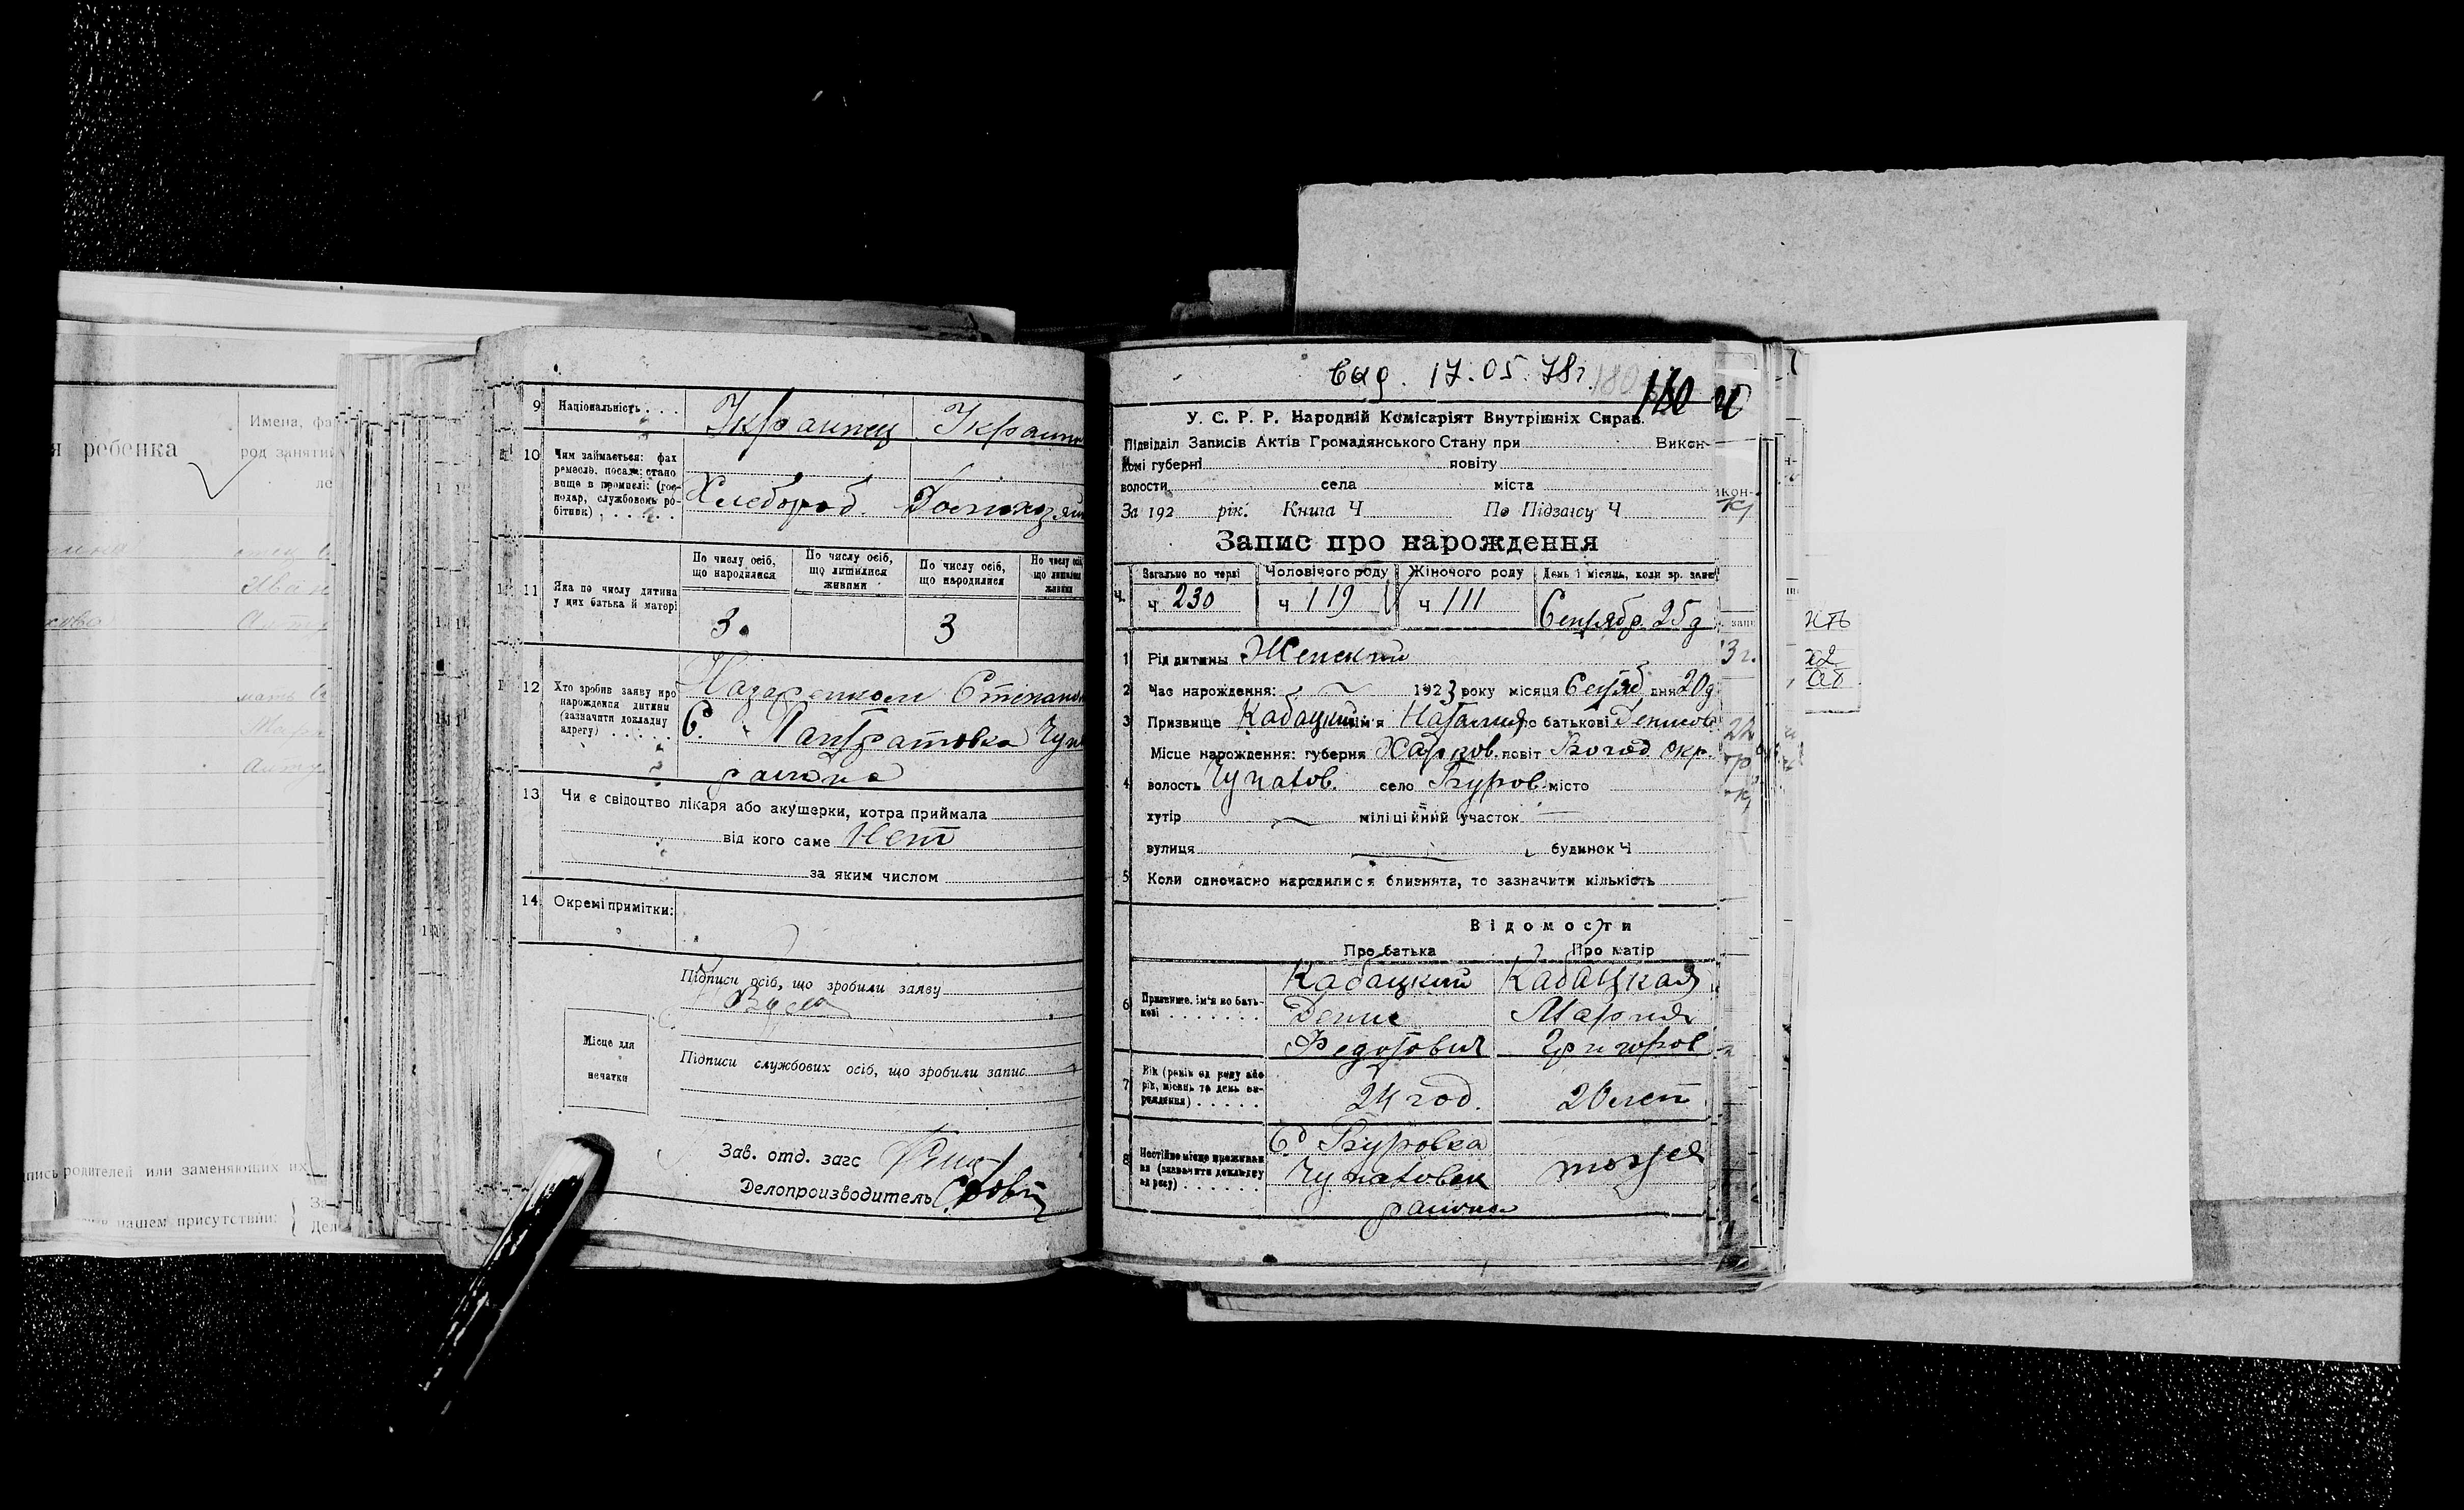 я ребенка
Имена, фа
род заняти
ле
пись родителей или заменяющих их
нашем присутствии:
9 Національність . . . Украинец Украин
10 Чим займається: фах
ремесло, посада: стано
вище в промислі: (гос-
подар, службовець ро-
бітник) . . . . .
Хлебороб.
11 Яка по числу дитина
у цих батька й матері
По числу осіб,
що народилися
По числу осіб,
що лишилися
живими
По числу осіб,
що народилися
По числу осіб
що лишилися
живими
3. 3
12 Хто зробив заяву про
народження дитини
(зазначити докладну
адресу) . . . . .
Назаренком Степаном
С. Панкратовка Чуп
района
13 Чи є свідоцтво лікаря або акушерки, котра приймала
від кого саме Нет
за яким числом
14 Окремі примітки:
Підписи осіб, що зробили заяву
Місце для
печатки
Підписи службових осіб, що зробили запис
Зав. отд. загс
Делопроизводитель
выд. 17.05.78г. 180
У. С. Р. Р. Народній Комісаріят Внутрішніх Справ.
Підвідділ Записів Актів Громадянського Стану при Викон-
комі губерні повіту
волости села міста
За 192 рік. Книга Ч По Підзагсу Ч
Запис про народження
Загально по черзі Чоловічого роду Жіночого роду День і місяць, коли зр. запис
Ч 230 Ч 119 Ч 111 Сентябр. 25д
1 Рід дитини Женский
2 Час народження: 1923 року місяця Сентяб дня 20д
3 Призвище Кабацкий ім'я Наталия по батькові Денисов
Місце народження: губерня Харков. повіт Богод окр.
4 волость Чупахов. село Буров місто
хутір міліційний участок
вулиця будинок Ч
5 Коли одночасно народилися близнята, то зазначити кількість
Відомости
Про батька Про матір
6 Призвище, ім'я по бать-
кові . . . . . . .
Кабацкий Кабацкая
Денис Мария
Федотович Григоров
7 Вік (років од роду або
рік, місяць та день на-
родження) . . . . .
24 год. 20 лет
8 Постійне місце проживан
ня (зазначити докладну
адресу) . . . . . . .
Буровка
Чупаховск
района
тоже